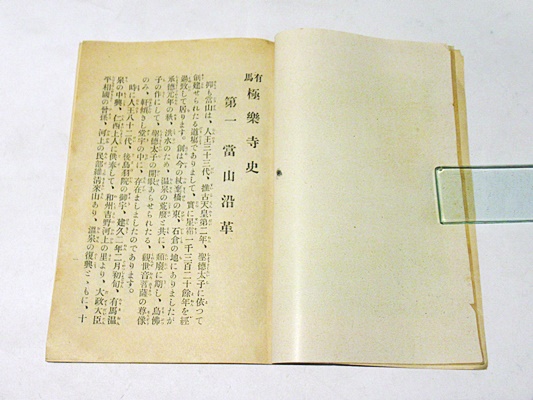 有馬 極樂寺史
第一 當山沿革
抑も當山は、人王三十三代、推古天皇第二年、聖德太子に依つて
創建せられたる道場でありまして、實に星霜一千三百二十餘年を經
過致して居ります。創は今の杖棄橋の東、石倉の地にありましたが
承德元年の秋、洪水のため、温泉の荒廢と共に、頽壞に期し、鳥佛
子の作にして、聖德太子の開眼あらせられたる、觀世音菩薩の尊像
のみ、軒傾きし堂宇の中に、存在ましましたのであります。
時に人王八十二代、後鳥羽院の御宇、建久二年二月初旬、有馬温
泉の中興、仁西上人に供奉して、和州吉野河上の里より、大政大臣
平相國の曾孫、河上の民部維清來山あり、温泉の復興と、もに、十